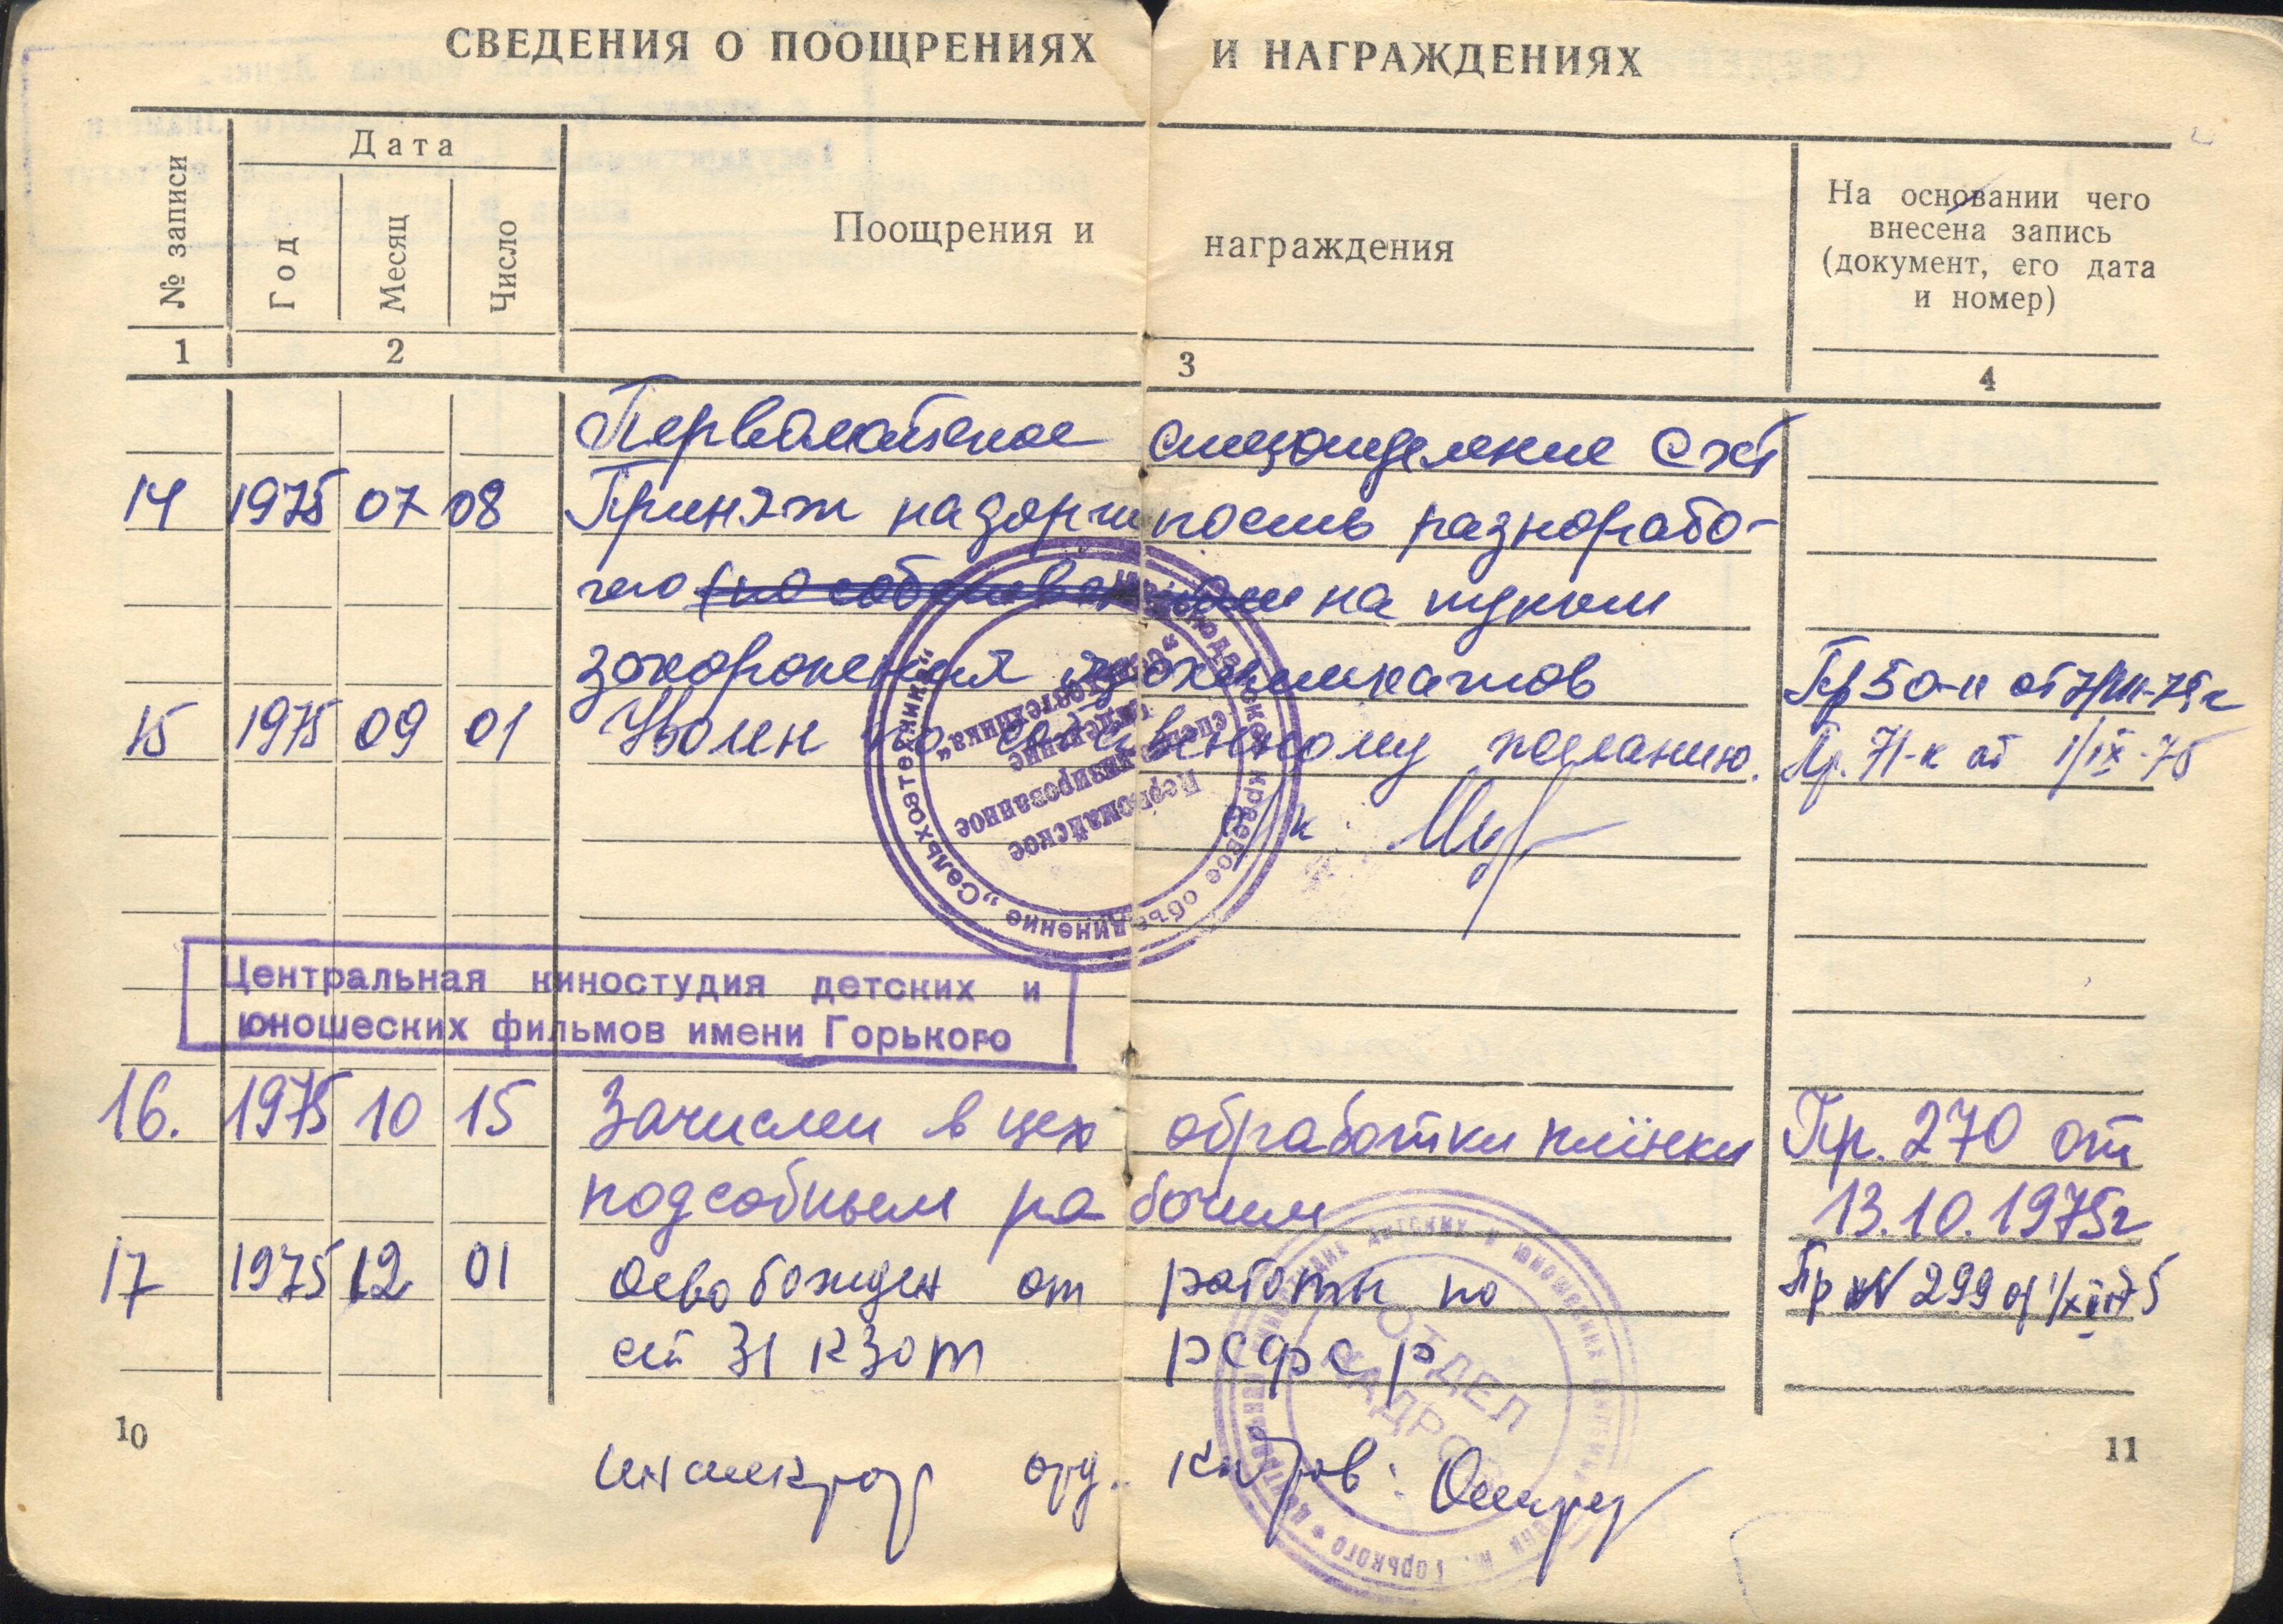 СВЕДЕНИЯ О ПООЩРЕНИЯХ И НАГРАЖДЕНИЯХ
№ записи
Дата
Год
Месяц
Число
Поощрения и награждения
На основании чего
внесена запись
(документ, его дата
и номер)
1 2 3 4
Первомайское спецотделение СХТ
14 1975 07 08 Принят на должность разнорабо-
чего на пункт
захоронения ядохимикатов Пр 50-к от 7/VII-75г
15 1975 09 01 Уволен по собственному желанию. Пр. 71-к от 1/IX-75
Первомайское
специализированное
отделение
„Сельхозтехника“
краевое объединение „Сельхозтехника“
Центральная киностудия детских и
юношеских фильмов имени Горького
16. 1975 10 15 Зачислен в цех обработки плёнки Пр. 270 от
подсобным рабочим 13.10.1975г
17 1975 12 01 Освобожден от работы по Пр № 299 от 1/XII 75
ст 31 КЗОТ РСФСР
ОТДЕЛ
КАДРОВ
10
инспектор отд. кадров:
11